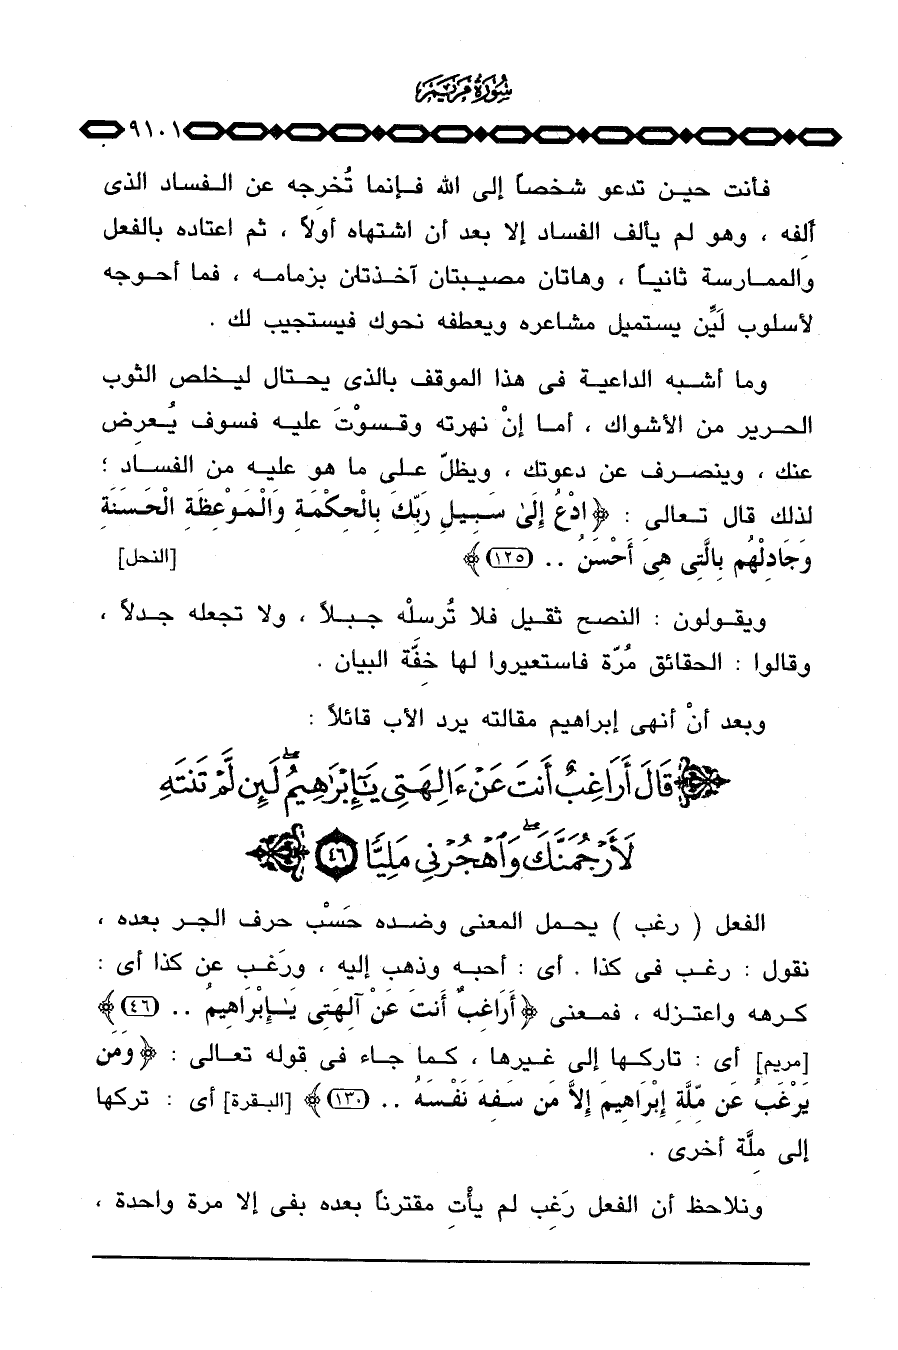 سورة مريم
٩١٠١
فأنت حين تدعو شخصاً إلى الله فإنما تُخرجه عن الفساد الذى
ألفه ، وهو لم يألف الفساد إلا بعد أن اشتهاه أولاً ، ثم اعتاده بالفعل
والممارسة ثانياً ، وهاتان مصيبتان آخذتان بزمامه ، فما أحوجه
لأسلوب لَيِّن يستميل مشاعره ويعطفه نحوك فيستجيب لك .
وما أشبه الداعية فى هذا الموقف بالذى يحتال ليخلص الثوب
الحرير من الأشواك ، أما إنْ نهرته وقسوْتَ عليه فسوف يُعرض
عنك ، وينصرف عن دعوتك ، ويظلّ على ما هو عليه من الفساد ؛
لذلك قال تعالى : ﴿ ادْعُ إِلَىٰ سَبِيلِ رَبِّكَ بِالْحِكْمَةِ وَالْمَوْعِظَةِ الْحَسَنَةِ
وَجَادِلْهُم بِالَّتِي هِيَ أَحْسَنُ .. (١٢٥) ﴾ [النحل]
ويقولون : النصح ثقيل فلا تُرسلْه جبلاً ، ولا تجعله جدلاً ،
وقالوا : الحقائق مُرّة فاستعيروا لها خفَّة البيان .
وبعد أنْ أنهى إبراهيم مقالته يرد الأب قائلاً :
قَالَ أَرَاغِبٌ أَنتَ عَنْ ءَالِهَتِى يَٰٓإِبْرَٰهِيمُ ۖ لَئِن لَّمْ تَنتَهِ
لَأَرْجُمَنَّكَ ۖ وَٱهْجُرْنِى مَلِيًّا ٤٦
الفعل ( رغب ) يحمل المعنى وضده حَسْب حرف الجر بعده ،
نقول : رغب فى كذا . أى : أحبه وذهب إليه ، ورَغب عن كذا أى :
كرهه واعتزله ، فمعنى ﴿ أَرَاغِبٌ أَنتَ عَنْ آلِهَتِي يَـٰإِبْرَاهِيمُ .. (٤٦) ﴾
[مريم] أى : تاركها إلى غيرها ، كما جاء فى قوله تعالى : ﴿ وَمَن
يَرْغَبُ عَن مِّلَّةِ إِبْرَاهِيمَ إِلاَّ مَن سَفِهَ نَفْسَهُ .. (١٣٠) ﴾ [البقرة] أى : تركها
إلى ملَّة أخرى .
ونلاحظ أن الفعل رَغب لم يأْت مقترناً بعده بفى إلا مرة واحدة ،